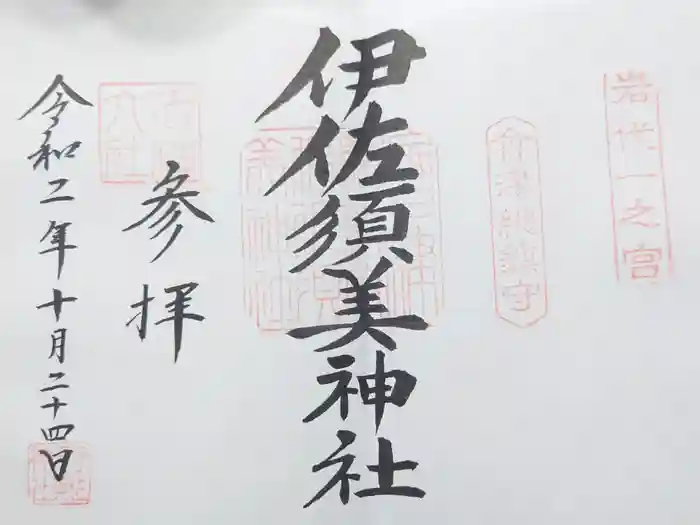 岩代一之宮
会津総鎮守
伊佐須美神社
参拝
令和二年十月二十四日